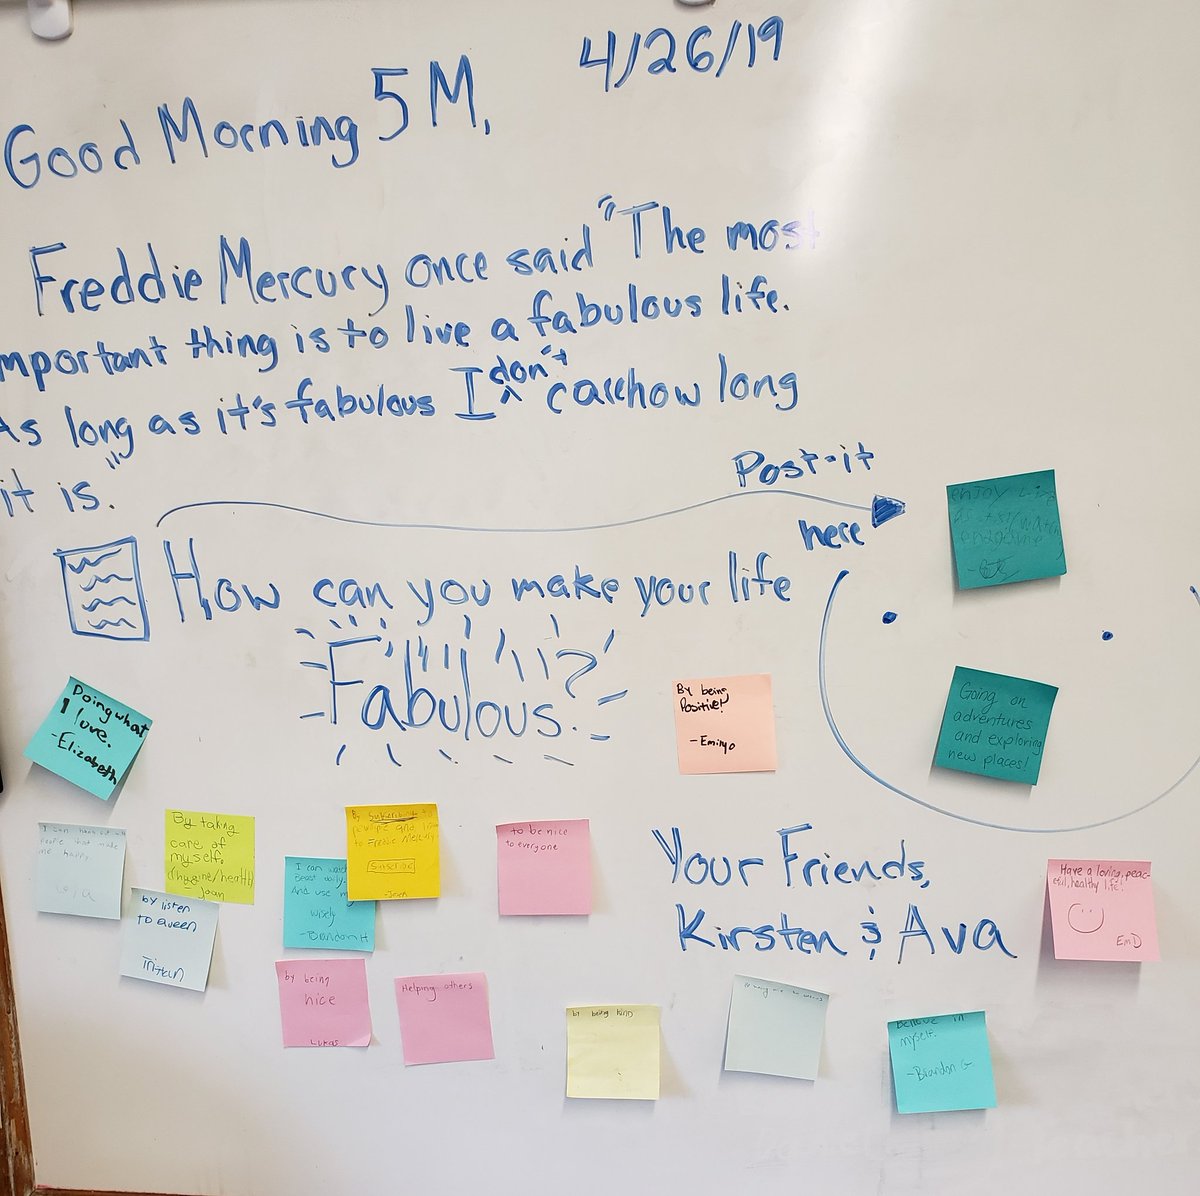 4/26/19
Good Morning 5M,
Freddie Mercury once said "The most
mportant thing is to live a fabulous life.
As long as it's fabulous I don't care how long
it is."
Post-it
here
How can you make your life
Fabulous?
enjoy
Going on
adventures
and exploring
new places!
Doing what
I love.
-Elizabeth
By being
Positive!
-Emily
I can hang out with
people that make
me happy.
By taking
care of
myself.
(hygine/health)
- Joan
By subscribing to
to Freddie Mercury
Subscribe
I can watch
Beast daily.
And use my
wisely
-Brandon H
to be nice
to everyone
by listen
to queen
Tristan
by being
nice
Lukas
Helping others
by being kind
Your Friends,
Kirsten & Ava
Have a loving, peac-
eful, healthy life!
Em D
Believe in
myself.
-Brandon G